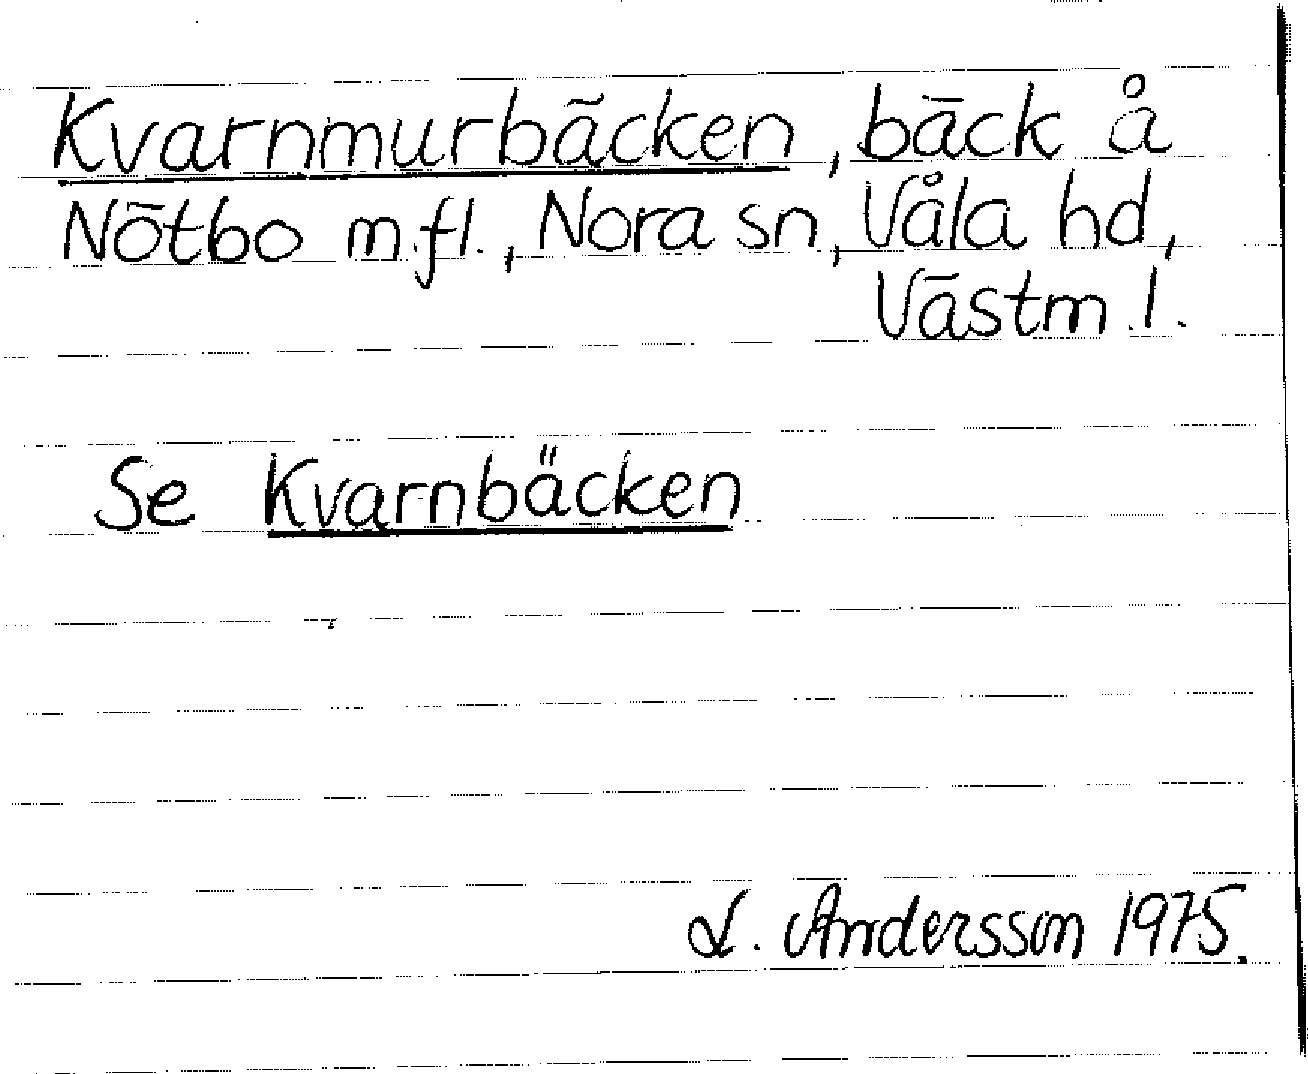 Kvarnmurbäcken, bäck å
Nötbo m.fl., Nora sn, Våla hd,
Västm.l.
Se Kvarnbäcken
L. Andersson 1975.